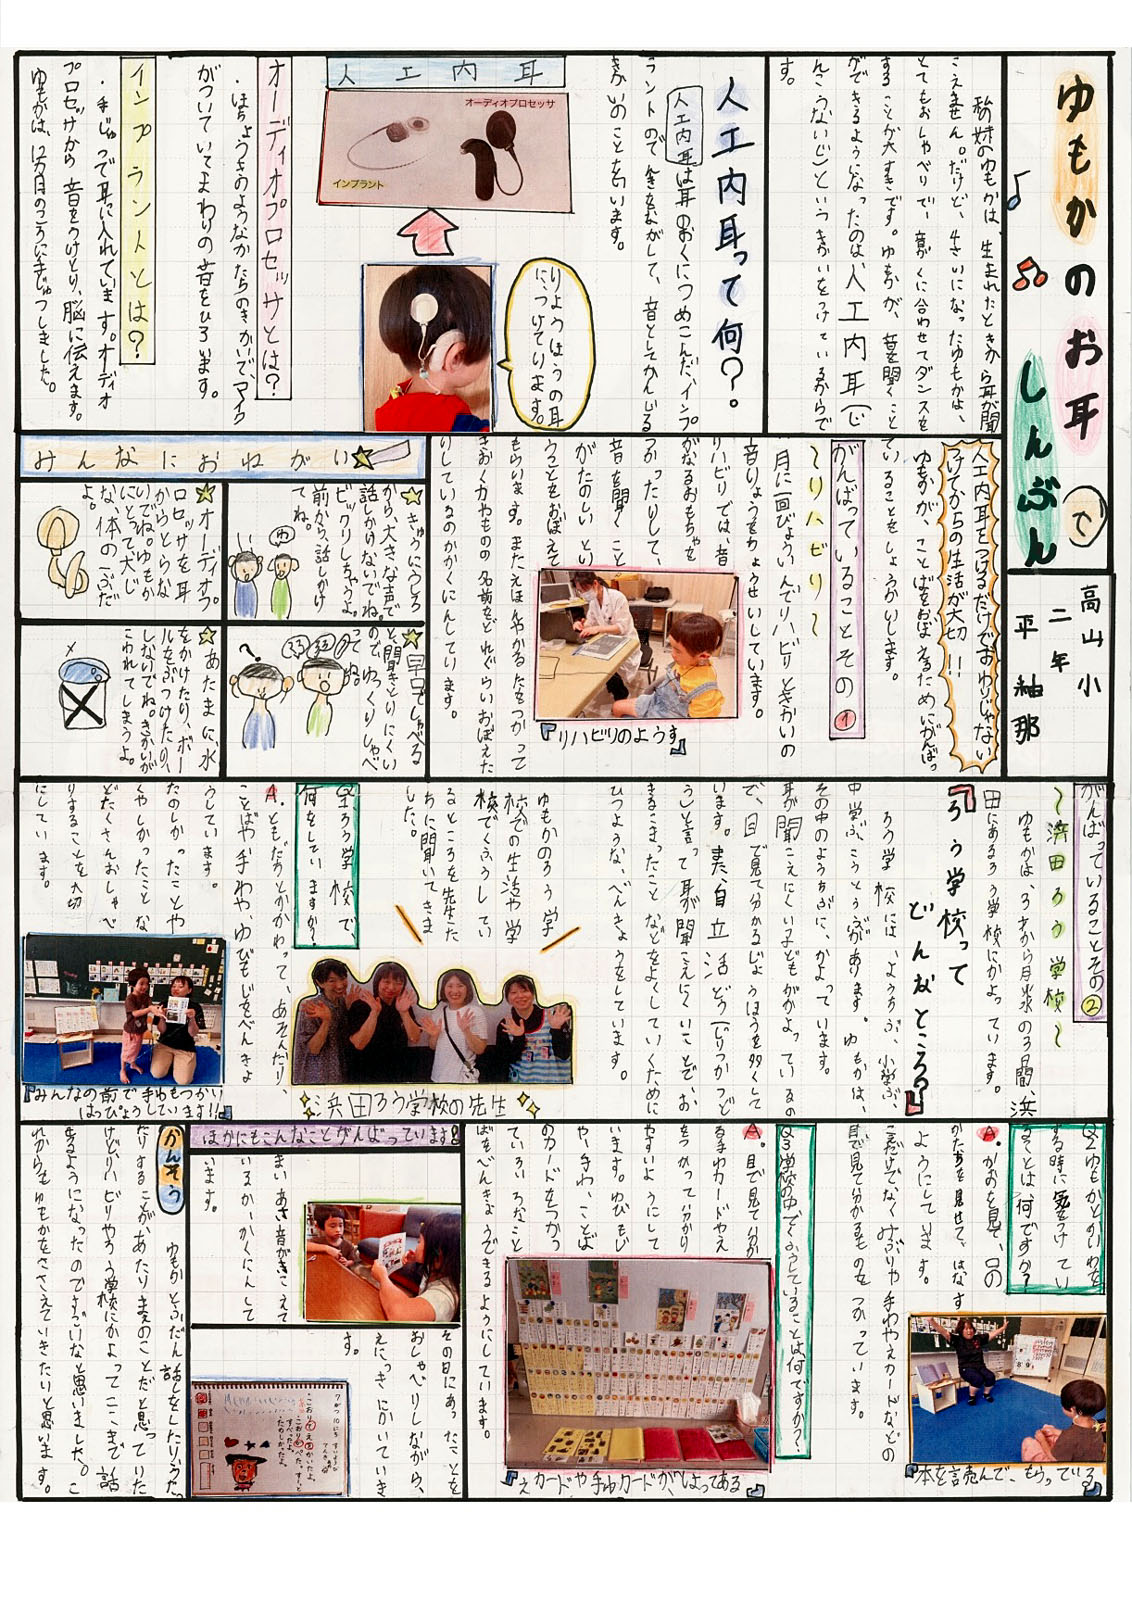 ゆもかのお耳
しんぶん
高山小
二年
平紬那
私の妹のゆもかは、生まれたときから耳が聞
こえません。だけど、4さいになったゆもかは、
とてもおしゃべりで、音がくに合わせてダンスを
することが大すきです。ゆもかが、音を聞くこと
ができるようになったのは、人工内耳(じ
んこうないじ)というきかいをつけているからで
す。
人工内耳って何?。
人工内耳は耳のおくにうめこんだ、インプ
ラントので、
きかいのことをいいます。
りょうほうの耳
につけてります。
人工内耳
オーディオプロセッサ
インプラント
オーディオプロセッサとは?
・ほちょうきのようなかたちのきかいで、マイク
がついていてまわりの音をひろいます。
インプラントとは?
・手じゅつで耳に入れています。オーディオ
プロセッサから音をうけとり、脳に伝えます。
ゆもかは、
人工内耳をつけるだけでおわりじゃない
つけてからの生活が大切!!!
ゆもかが、ことばをおぼえるためにがんばっ
ていることをしょうかいします。
がんばっていることその①
〜リハビリ〜
月に一回びょういんでリハビリときかいの
音りょうをちょうせいしています。
リハビリでは、音
がなるおもちゃを
つかったりして、
音を聞くこと
がたのしいとい
うことをおぼえて
もらいます。またえほんやかるたをつかって
きおく力やものの名前をどれぐらいおぼえた
りしているのかかくにんしています。
『リハビリのようす』
みんなにおねがい
☆きゅうにうしろ
から、大きな声で
話しかけないでね。
ビックリしちゃうよ。
前から、話しかけ
てね。
☆オーディオプ
ロセッサを耳
からとらな
いでね。ゆもか
にとって大じ
な、体の一ぶだ
よ。
☆早口でしゃべる
と聞きとりにくい
のでゆっくりしゃべ
ってね。
☆あたまに、水
をかけたり、ボー
ルをぶつけたり
しないでね。きかいが
こわれてしまうよ。
がんばっていることその②
〜浜田ろう学校〜
ゆもかは、3才から月水の3日間、浜
田にあるろう学校にかよっています。
『ろう学校って
どんなところ?』
ろう学校には、ようちぶ、小学ぶ、
中学ぶ、こうとうぶがあります。ゆもかは、
その中のようちぶに、かよっています。
耳が聞こえにくい子どもがかよっているの
で、目で見て分かるじょうほうを多くして
います。また、自立活どう(じりつかつど
う)と言って耳が聞こえにくいことで、お
きるこまったことなどをよくしていくために
ひつような、べんきょうをしています。
ゆもかのろう学
校での生活や学
校でくふうしてい
るところを先生た
ちに聞いてきま
した。
浜田ろう学校の先生
Q1ろう学校で、
何をしていますか?
A.ともだちとかかわって、あそんだり、
ことばや手わや、ゆびもじをべんきょ
うしています。
たのしかったことや
くやしかったことな
どたくさんおしゃべ
りすることを大切
にしています。
『みんなの前で手わもつかい
はっぴょうしています!!』
Q2ゆもかとかいわを
する時に気をつけてい
ることは、何ですか?
A.かおを見て、口の
かたちを見せて、はなす
ようにしています。
ことばだけでなく、みぶりや手わやえカードなどの
目で見て分かるものをつかっています。
『本を読んでもらっている』
Q3学校の中でくふうしていることは何ですか?
A.目で見て分か
る手わカードやえ
をつかって分かり
やすいようにして
います。ゆびもじ
や、手わ、ことば
のカードをつかっ
ていろいろなこと
ばをべんきょうできるようにしています。
『えカードや手わカードが、はってある』
ほかにもこんなことがんばっています!
まいあさ音がきこえて
いるか、かくにんして
います。
その日にあったことを
おしゃべりしながら、
えにっきにかいていき
す。
かんそう
ゆもかとふだん話しをしたり、うた
たりすることが、あたりまえのことだと思っていた
けど、リハビリやろう学校にかよってここまで話
せるようになったのですごいなと思いました。こ
れからもゆもかをささえていきたいと思います。